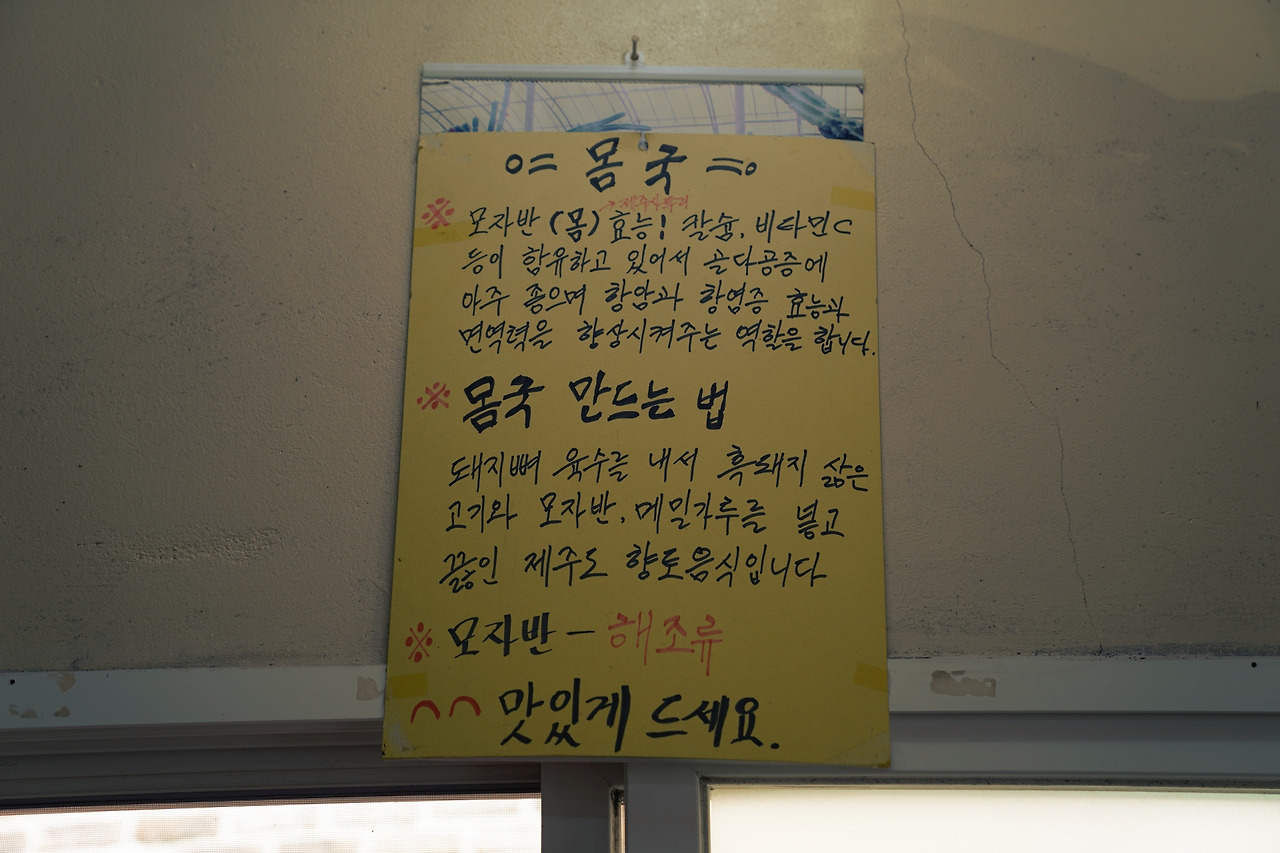 몸국
→ 제주사투리
※ 모자반 (몸) 효능! 칼슘, 비타민C
등이 함유하고 있어서 골다공증에
아주 좋으며 항암과 항염증 효능과
면역력을 향상시켜주는 역할을 합니다.
※ 몸국 만드는 법
돼지뼈 육수를 내서 흑돼지 삶은
고기와 모자반, 메밀가루를 넣고
끓인 제주도 향토음식입니다
※ 모자반 - 해조류
맛있게 드세요.